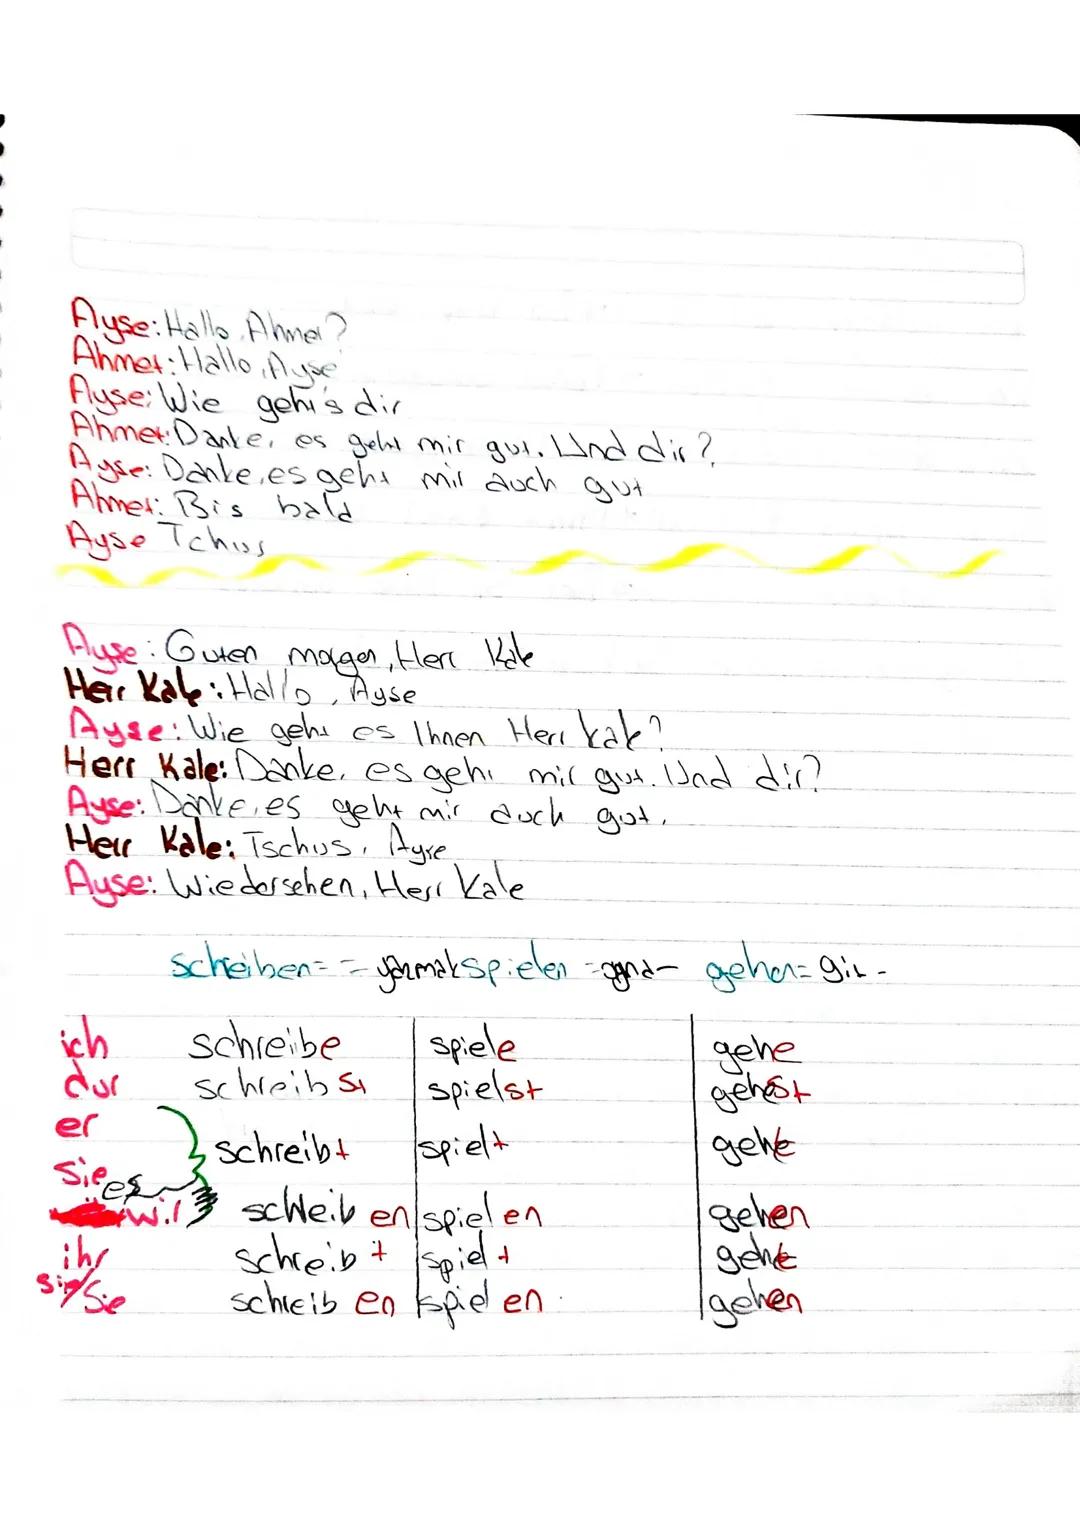 Ayse: Hallo, Ahmet?
Ahmet: Hallo, Ayse
Ayse: Wie geht's dir
Ahmet: Danke, es geht mir gut. Und dir?
Ayse: Danke, es geht mir auch gut
Ahmet: Bis bald
Ayse Tchus
Ayse: Guten morgen, Herr Kale
Herr Kale: Hallo, Ayse
Ayse: Wie geht es Ihnen Herr kale?
Herr Kale: Danke, es geht mir gut. Und dir?
Ayse: Danke, es geht mir auch gut.
Herr Kale: Tschus, Ayse
Ayse: Wiedersehen, Herr Kale
scheiben= - yazmak spielen = gehen= git-
ich schreibe spiele gehe
du schreibst spielst gehst
er
schreibt spielt geht
sie es
wir schreiben spielen gehen
ihr schreibt spielt geht
sie/Sie schreiben spielen gehen